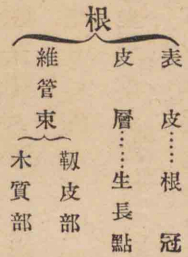 根
表皮……根冠
皮層……生長點
維管束
靱皮部
木質部